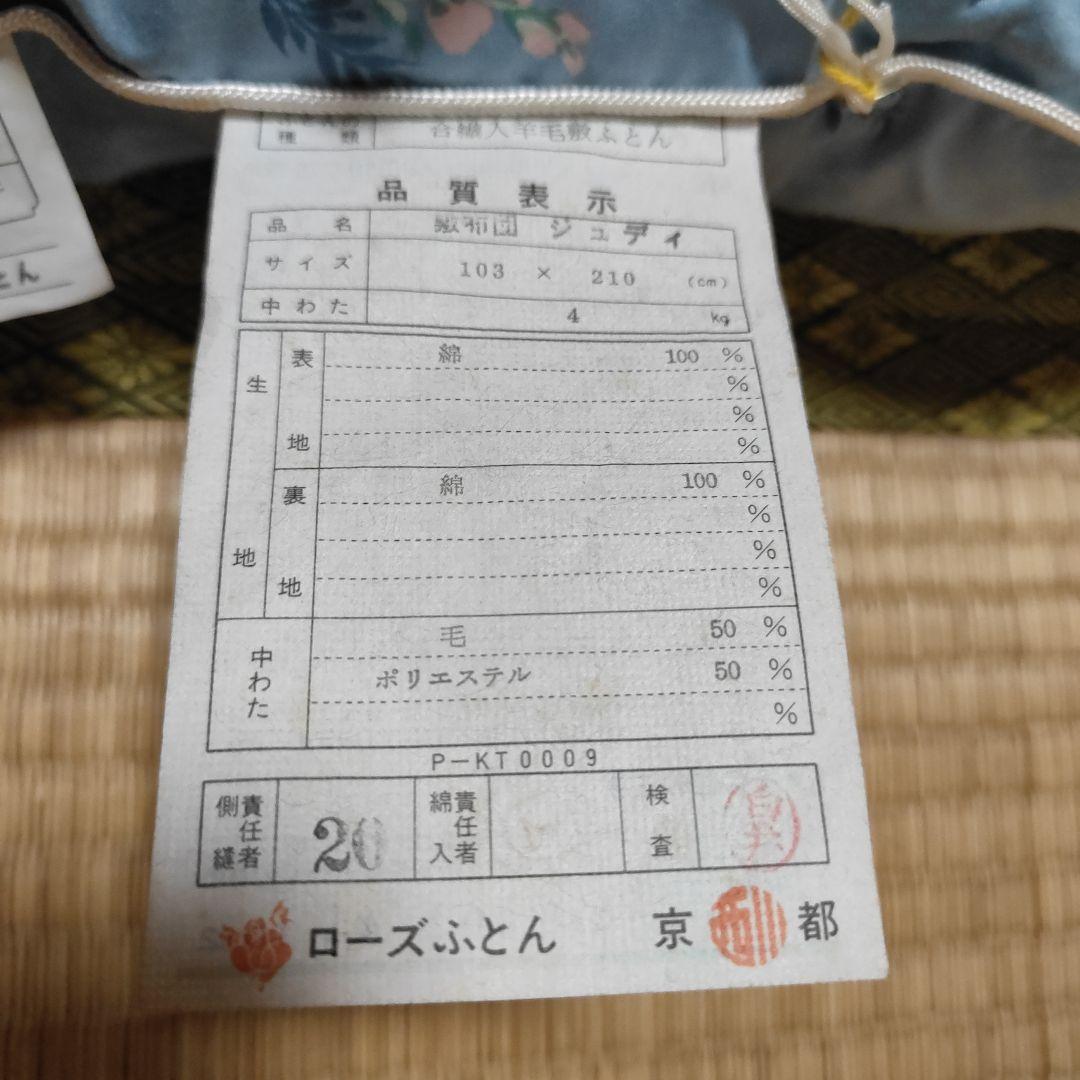 種類 合繊入羊毛敷ふとん
品質表示
品名 敷布団 ジュディ
サイズ 103 × 210 (cm)
中わた 4 kg
生地 表地 綿 100 %
%
%
%
裏地 綿 100 %
%
%
%
中わた 毛 50 %
ポリエステル 50 %
%
P-KT0009
側縫責任者 20 綿入責任者 検査
ローズふとん 京 西川 都
とん